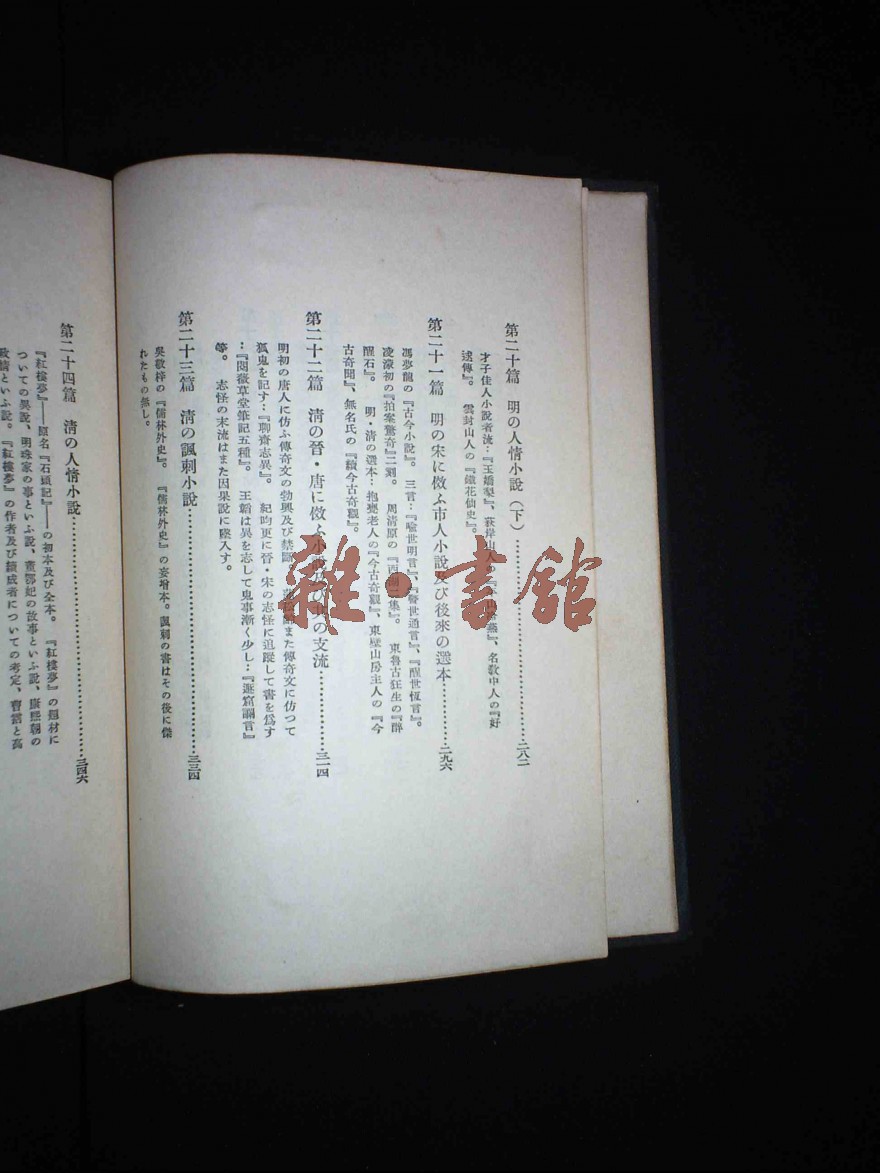 第二十篇　明の人情小說(下)……二八二
才子佳人小說者流…『玉嬌梨』、荻岸山人の『平山冷燕』、名敎中人の『好
逑傳』。　雲封山人の『鐵花仙史』。
第二十一篇　明の宋に倣ふ市人小說及び後來の選本……二九六
馮夢龍の『古今小說』。　三言…『喩世明言』、『警世通言』、『醒世恆言』。
凌濛初の『拍案驚奇』二刻。　周淸原の『西湖二集』。　東魯古狂生の『醉
醒石』。　明・淸の選本…抱甕老人の『今古奇觀』、東壁山房主人の『今
古奇聞』、無名氏の『續今古奇觀』。
第二十二篇　淸の晉・唐に倣ふ小說及び其の支流……三一四
明初の唐人に仿ふ傳奇文の勃興及び禁斷。　蒲松齡また傳奇文に仿つて
狐鬼を記す…『聊齋志異』。　紀昀更に晉・宋の志怪に追蹤して書を爲す
…『閱微草堂筆記五種』。　王韜は異を志して鬼事漸く少し…『遯窟讕言』
等。　志怪の末流はまた因果說に墜入す。
第二十三篇　淸の諷刺小說……三三四
吳敬梓の『儒林外史』。　『儒林外史』の妄增本。　諷刺の書はその後に傑
れたもの無し。
第二十四篇　淸の人情小說……三四六
『紅樓夢』——原名『石頭記』——の初本及び全本。　『紅樓夢』の題材に
ついての異說、明珠家の事といふ說、董鄂妃の故事といふ說、康熙朝の
政情といふ說。　『紅樓夢』の作者及び續成者についての考定、曹霑と高
雜・書館